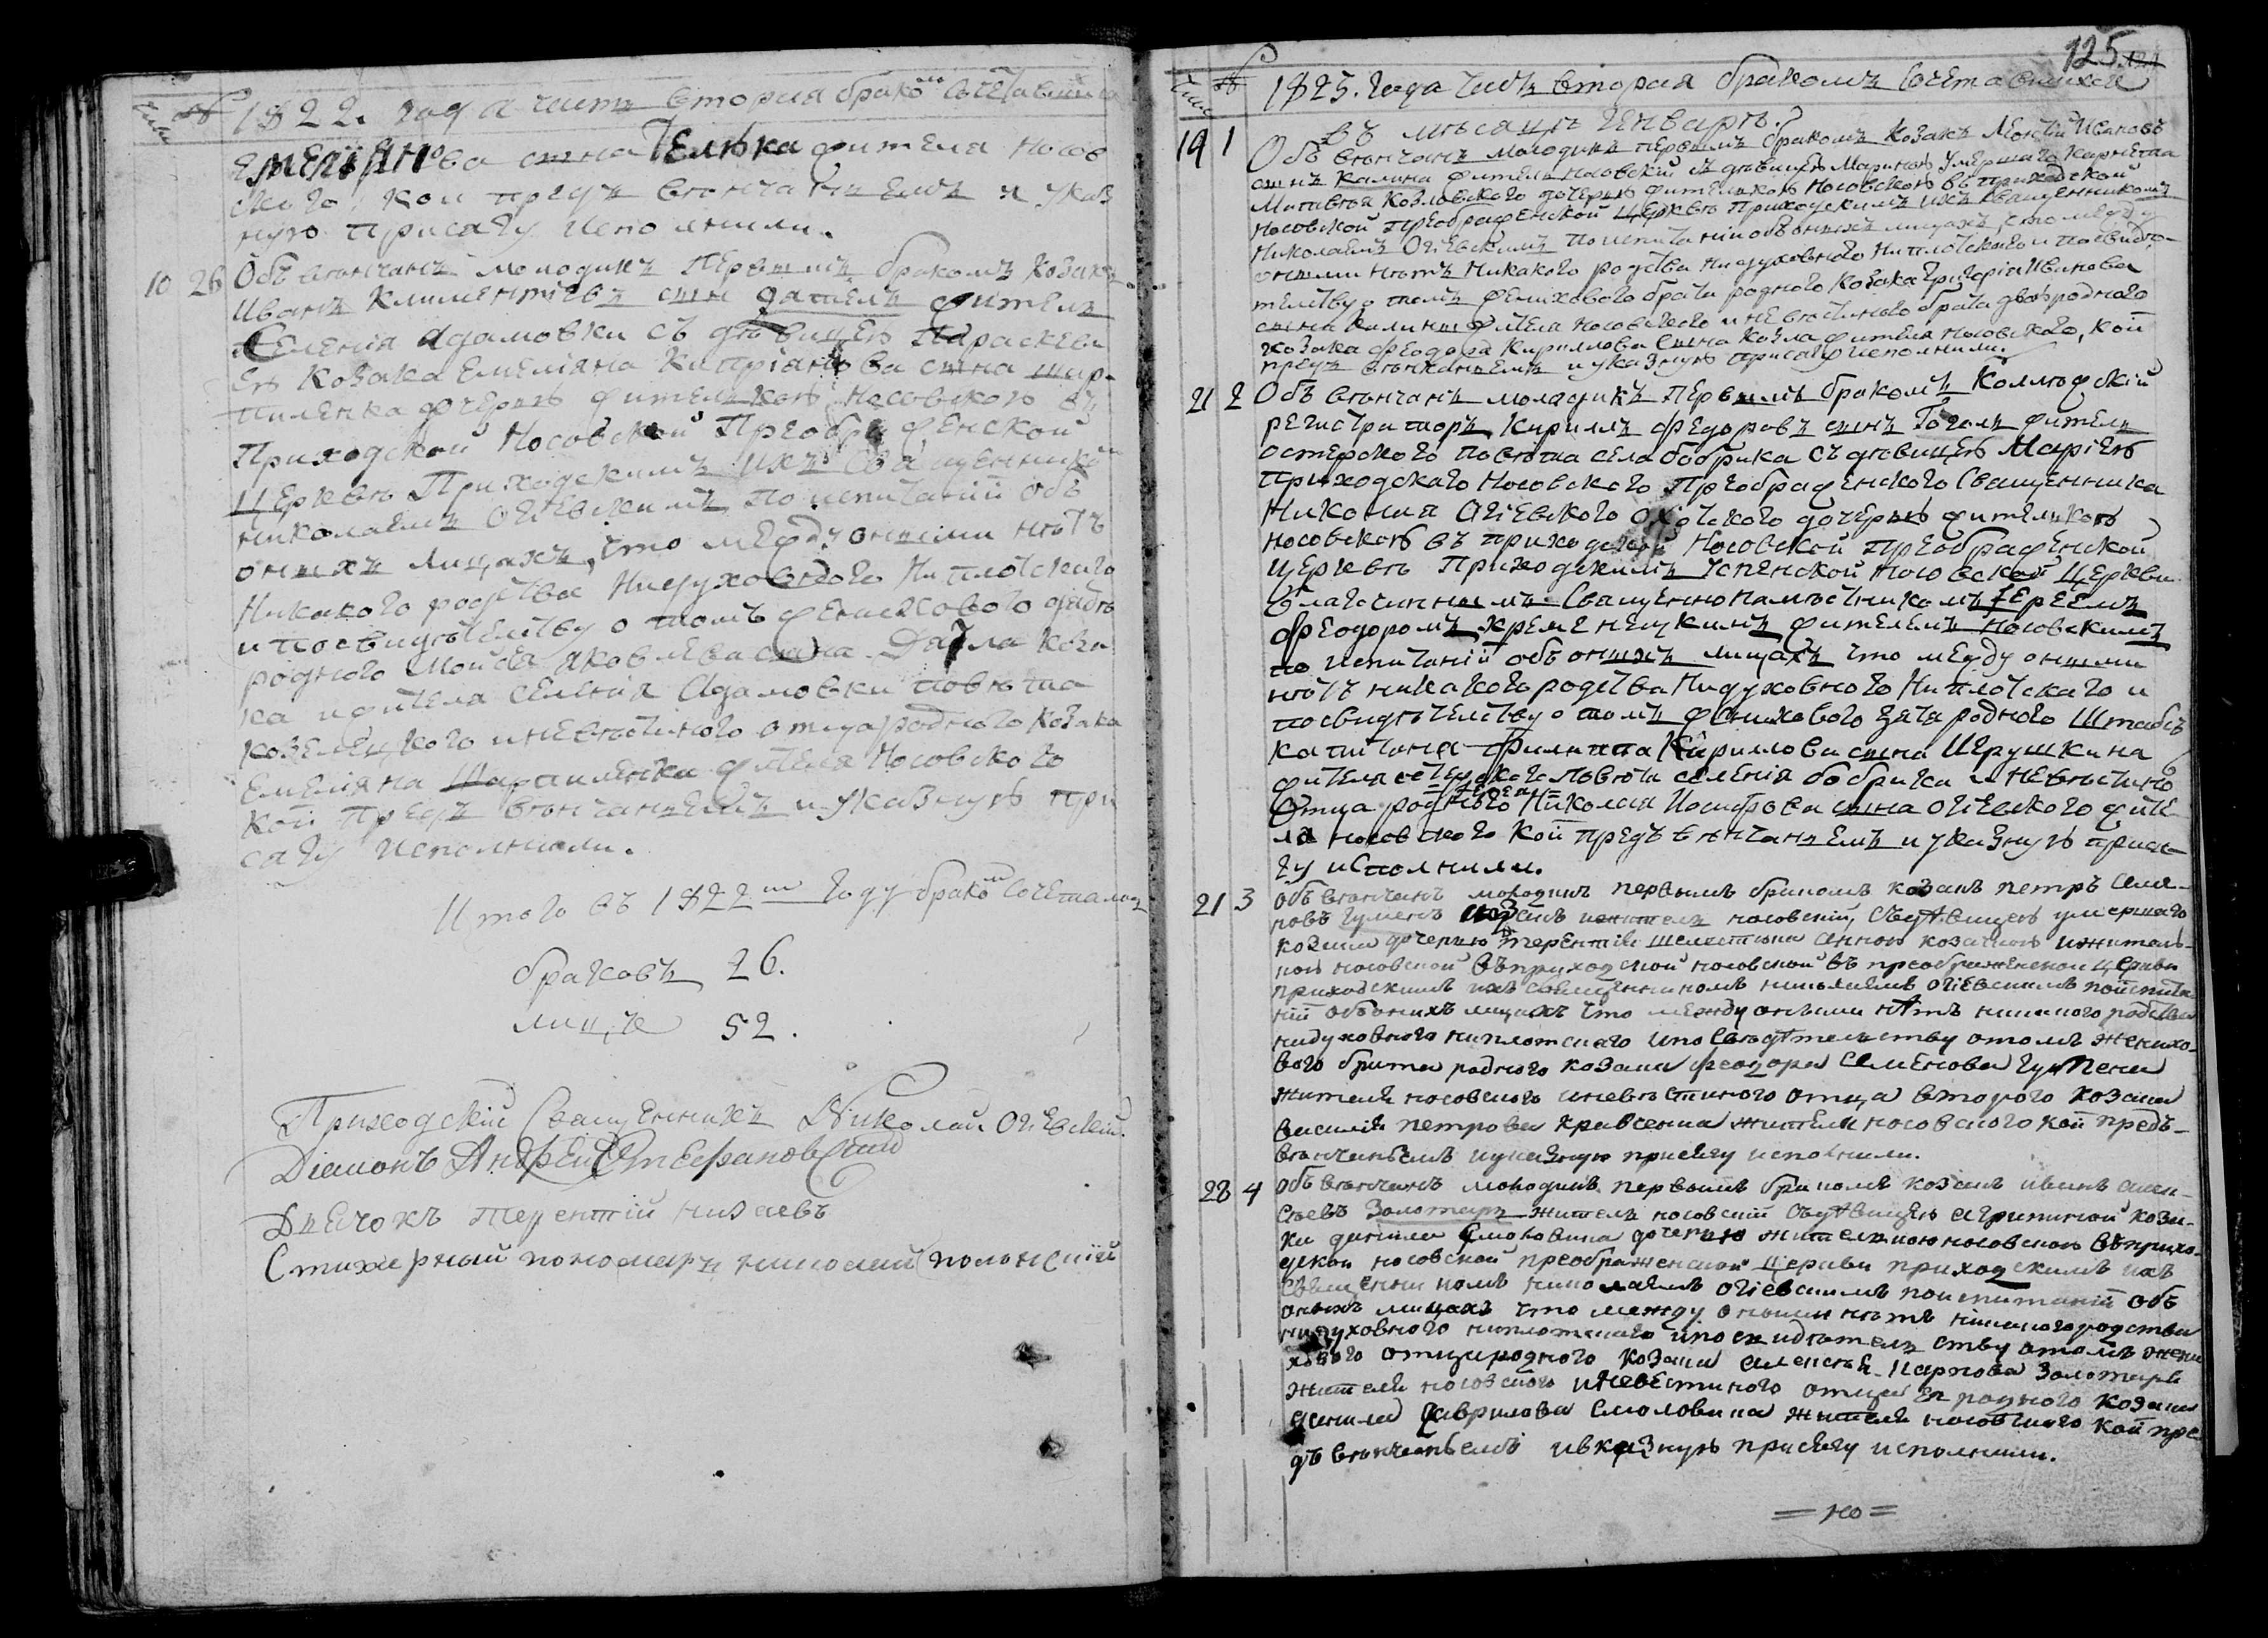 1822. года часть вторая брако^м сочетавшихся
Емелiянова сына Гелѣка жителя Носов
ского, кои предъ вѣнчаніемъ и указ
ную присягу исполнили.
10 26 Обвѣнчанъ молодикъ первымъ бракомъ козакъ
Иванъ Климентіевъ сынъ житель
селенія Адамовки съ дѣвицею Параскеви
ею козака Емеліяна Кипріянова сына Шар-
пиленка дочерью жителькою Носовского въ
Приходской Носовской Преображенской
Церквѣ Приходскимъ ихъ Священнико^м
Николаемъ Огіевскимъ по испитаній объ
оныхъ лицахъ, что между оными нѣтъ
Никакого родства Нидуховного Ниплотского
и посвидѣтелству о томъ женихового дядѣ
родного Мойсея Яковлева сына козака
ка и жителя селенія Адамовки повѣта
козелецкого и невѣстиного отца родного козака
Емеліяна Шарпиленка жителя Носовского
кои предъ вѣнчаніемъ и указную при
сягу исполнили.
Итого въ 1822^м году брако^м сочеталось
браковъ 26.
лицъ 52.
Приходскій Священникъ Николай Огіевскій.
Діаконъ Андрей Стефановскій
Дьячокъ Терентій Низаевъ
Стихарный пономарь николай полонскій
125.
1823. года часть вторая бракомъ сочетавшихся
въ мѣсяцѣ Генварѣ.
19 1 Обвѣнчанъ молодикъ первымъ бракомъ Козакъ Ивановъ
сынъ Калина житель Носовскій съ дѣвицею Мариною умершаго
Козловского дочерью жителькою Носовскою въ приходской
Носовской Преображенской Церквѣ Приходскимъ ихъ Священникомъ
Николаемъ Огіевскимъ по испитаній объ оныхъ лицахъ, что между
оными нѣтъ Никакого родства Нидуховного Ниплотского и посвидѣ-
телству о томъ женихового брата родного Козака Григорія Иванова
сына Калины жителя Носовского и невѣстиного брата двоюродного
козака Феодора Кириллова сына Козла жителя Носовского, кои
предъ вѣнчаніемъ и указную присягу исполнили.
21 2 Обвѣнчанъ молодикъ первымъ бракомъ Коллежскій
регистраторъ Кириллъ Федоровъ сынъ Гоголь житель
остерского повѣта села бобрика съ дѣвицею Маріею
приходского Носовского Преображенского Священника
Николая Огіевского дочерью жителькою
носовскою въ приходской Носовской Преображенской
церквѣ Приходскимъ Успенской носовской Церкви
благочиннымъ Священнонамѣстникомъ Іереемъ
Феодоромъ Кременецкимъ жителемъ носовскимъ
по испитаній объ оныхъ лицахъ что между оными
нѣтъ никакого родства Нидуховного Ниплотского и
посвидѣтелству о томъ женихового зятя родного Штабсъ
капитана Филиппа Кирилова сына Игрушкина
жителя остерского повѣта селенія бобрика и невѣстино
Отца родного Николая Иосифова сына огіевского жите
ля носовского кои предъ вѣнчаніемъ и указную прися
гу исполнили.
21 3 Обвѣнчанъ молодикъ первымъ бракомъ козакъ петръ Семе-
новъ Гуменъ житель носовскій, съ дѣвицею умершаго
козака дочерью Терентія Анною козачкою жителъ-
кою носовской въ приходской носовской въ преображенской церкви
приходскимъ ихъ священникомъ николаемъ огіевскимъ по испита
ній объ онихъ лицахъ что между оными нѣтъ никакого родства
нидуховного ниплотского и по свидѣтельству о томъ женихо-
вого брата родного козака феодора Семенова Гумена
жителя носовского и невѣстиного отца второго козака
василія петрова кравченка жителя носовского кои предъ-
вѣнчаніемъ и указную присягу исполнили.
28 4 Обвѣнчанъ молодикъ первымъ бракомъ козакъ иванъ алек-
сѣевъ Золотарь житель носовскій съ дѣвицею агрипиною коза-
ка данила Смоловика дочерью жителькою носовскою въ прихо-
дской носовской преображенской церкви приходскимъ ихъ
священникомъ николаемъ огіевскимъ по испитаній объ
оныхъ лицахъ что между оными нѣтъ никакого родства
нидуховного ниплотского и по свидѣтельству о томъ жени
хового отца родного козака алексѣя Карпова Золотаря
жителя носовского и невестиного отца ея родного козака
данила Гаврилова Смоловика жителя носовского кои пре
дъ вѣнчаніемъ и указную присягу исполнили.
= ю =